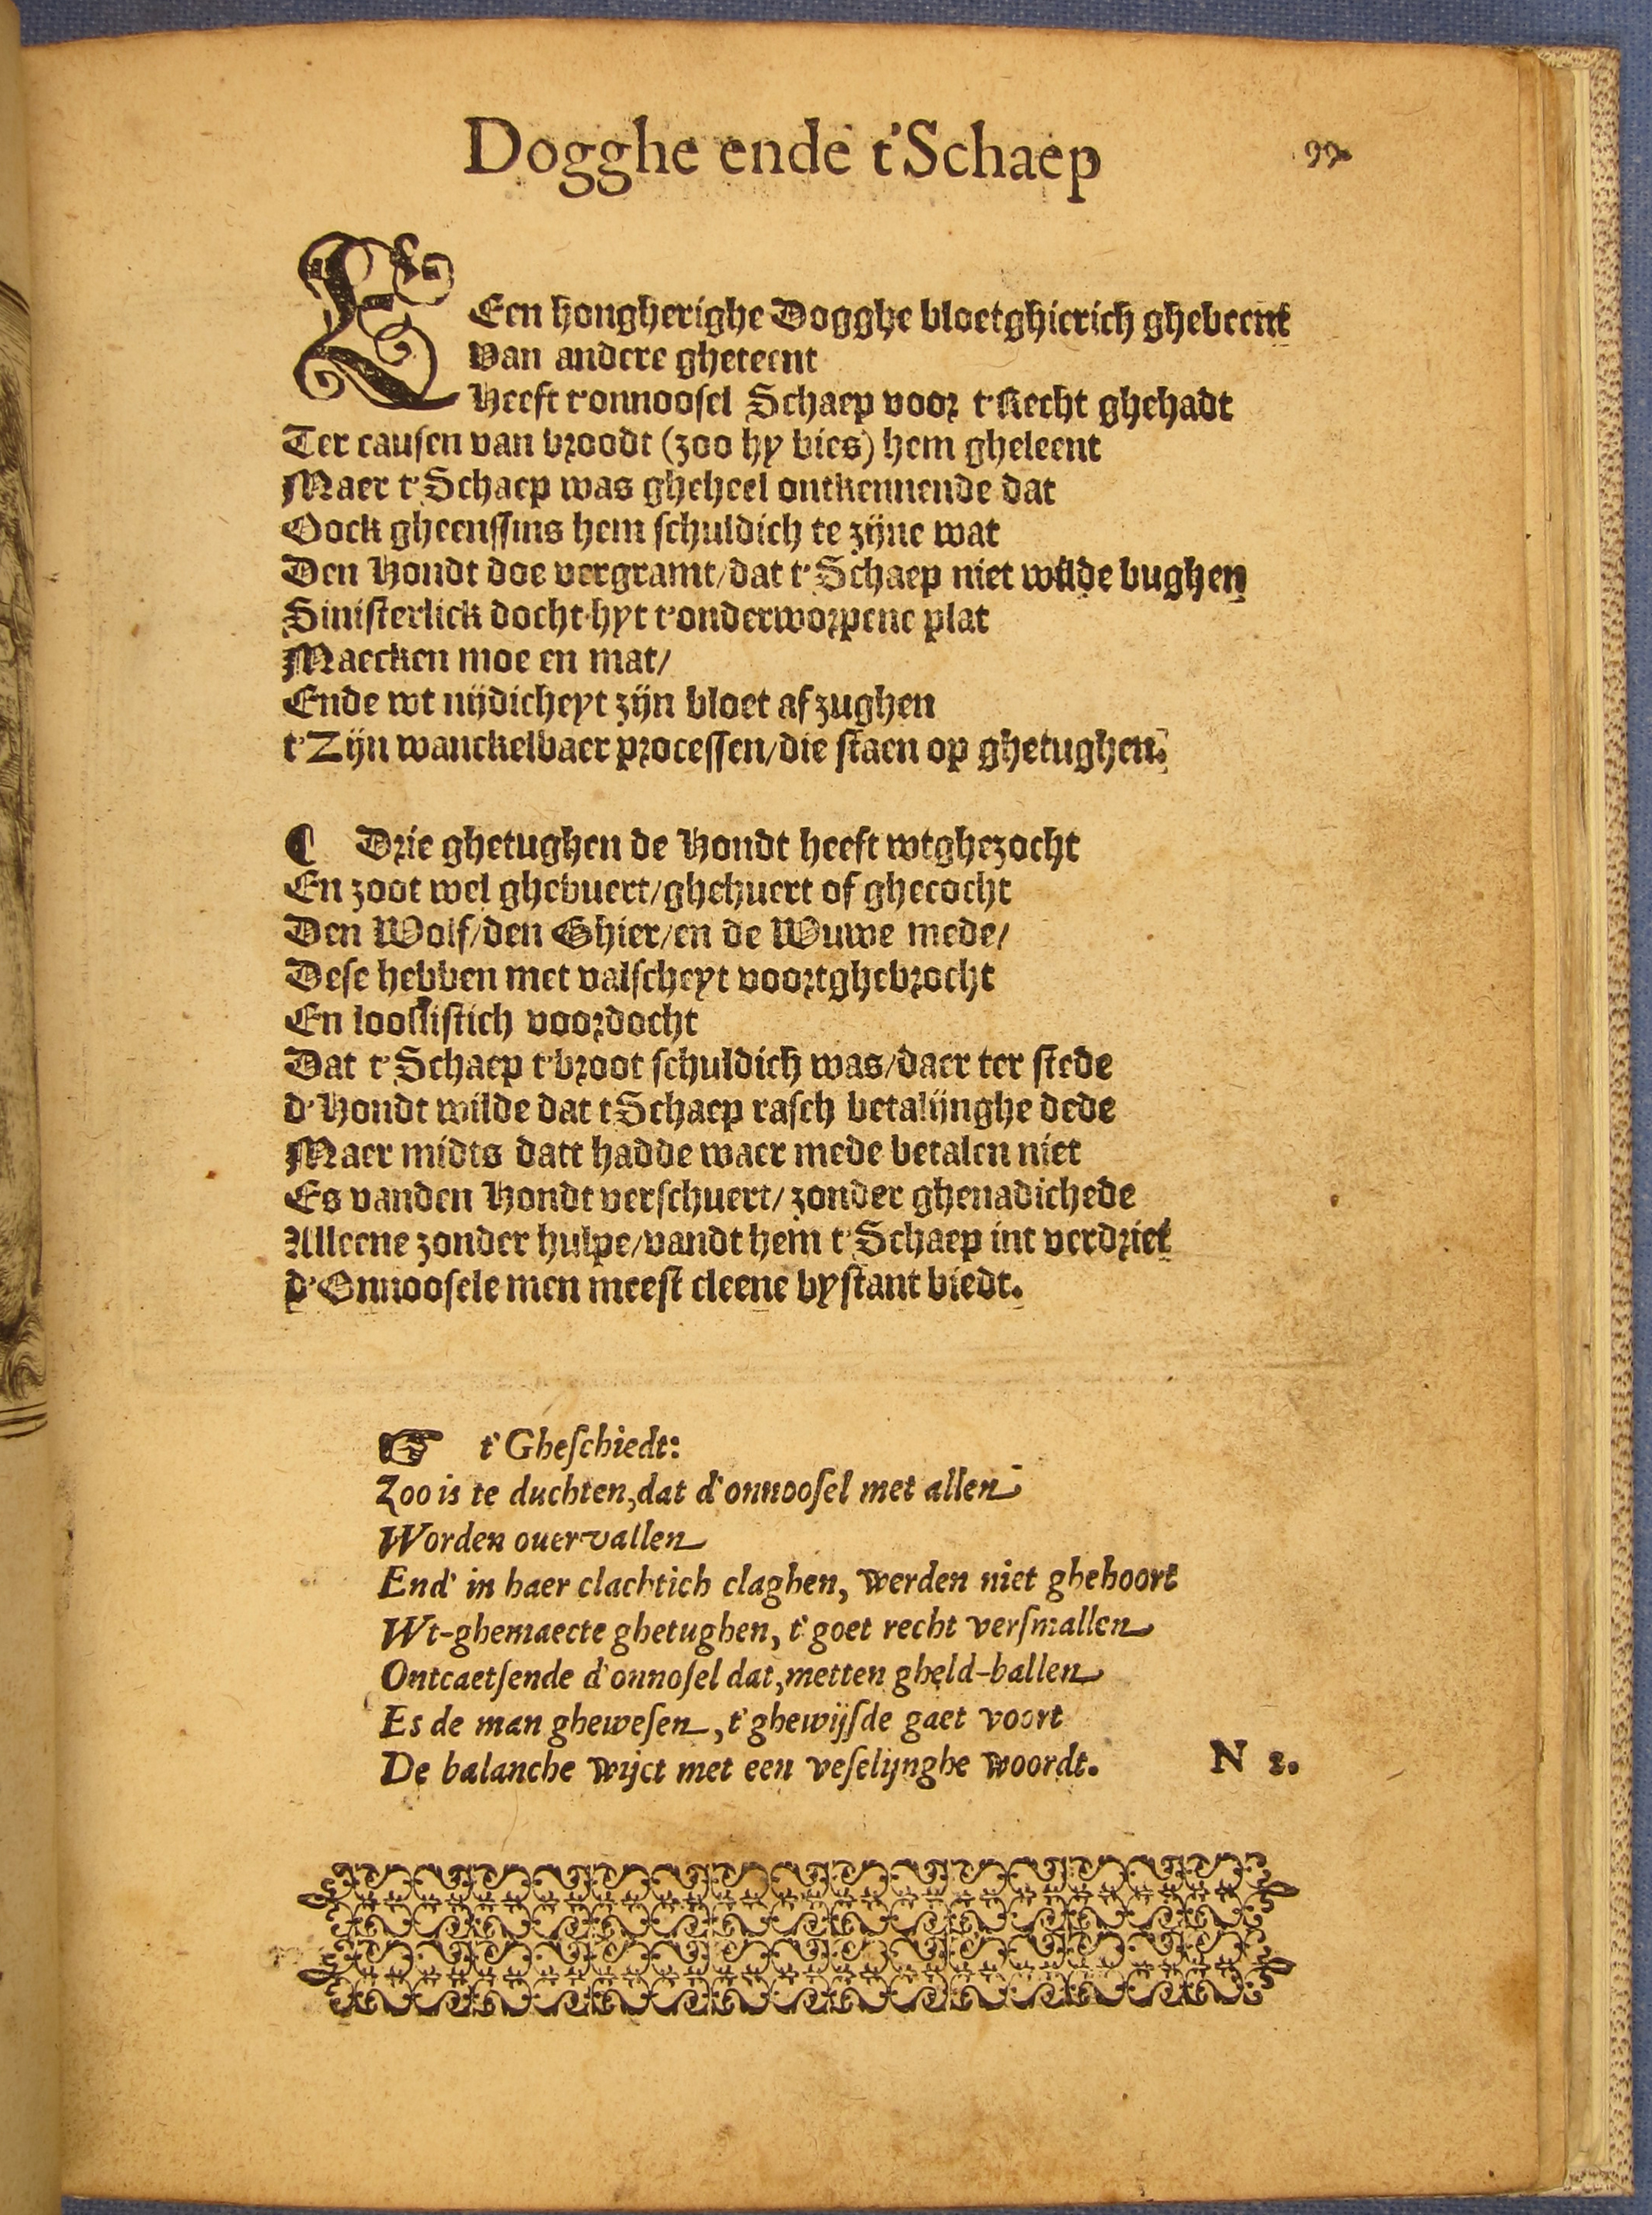 Dogghe ende t'Schaep
99.
EEen hongherighe Dogghe bloetghierich ghebeent
Van andere gheteent
Heeft t'onnoosel Schaep voor t'Recht ghehadt
Ter causen van broodt (zoo hy bies) hem gheleent
Maer t'Schaep was gheheel ontkennende dat
Oock gheenssins hem schuldich te zijne wat
Den Hondt doe vergramt/dat t'Schaep niet wilde bughen
Sinisterlick docht hyt t'onderworpene plat
Maecken moe en mat/
Ende wt nijdicheyt zijn bloet af zughen
t'Zijn wanckelbaer processen/die staen op ghetughen.
¶ Drie ghetughen de Hondt heeft wtghezocht
En zoot wel ghebuert/ghehuert of ghecocht
Den Wolf/den Ghier/en de Wuwe mede/
Dese hebben met valscheyt voortghebrocht
En looslistich voordocht
Dat t'Schaep t'broot schuldich was/daer ter stede
d'Hondt wilde dat tSchaep rasch betalijnghe dede
Maer midts datt hadde waer mede betalen niet
Es vanden Hondt verschuert/ zonder ghenadichede
Alleene zonder hulpe/vandt hem t'Schaep int verdriet
d'Onnoosele men meest cleene bystant biedt.
☞ t'Gheschiedt:
Zoo is te duchten,dat d'onnoosel met allen
Worden ouervallen
End' in haer clachtich claghen, werden niet ghehoort
Wt-ghemaecte ghetughen, t'goet recht versmallen
Ontcaetsende d'onnosel dat,metten gheld-ballen
Es de man ghewesen, t'ghewijsde gaet voort
De balanche wijct met een veselijnghe woordt.
N 2.